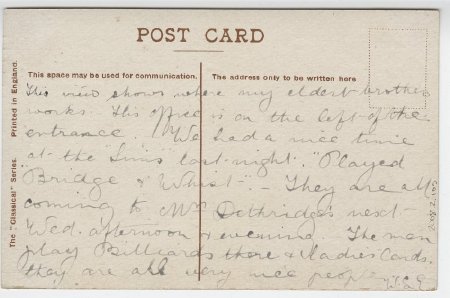 POST CARD
This space may be used for communication.
The address only to be written here
The "Classical" Series. Printed in England.
This view shows where my eldest brother
works. His office is on the left of the
entrance. We had a nice time
at the last night. "Played
Bridge & Whist" - They are all
coming to Mrs next
Wed. afternoon & evening. The men
play Billiards there & Ladies Cards.
they are all very nice people.